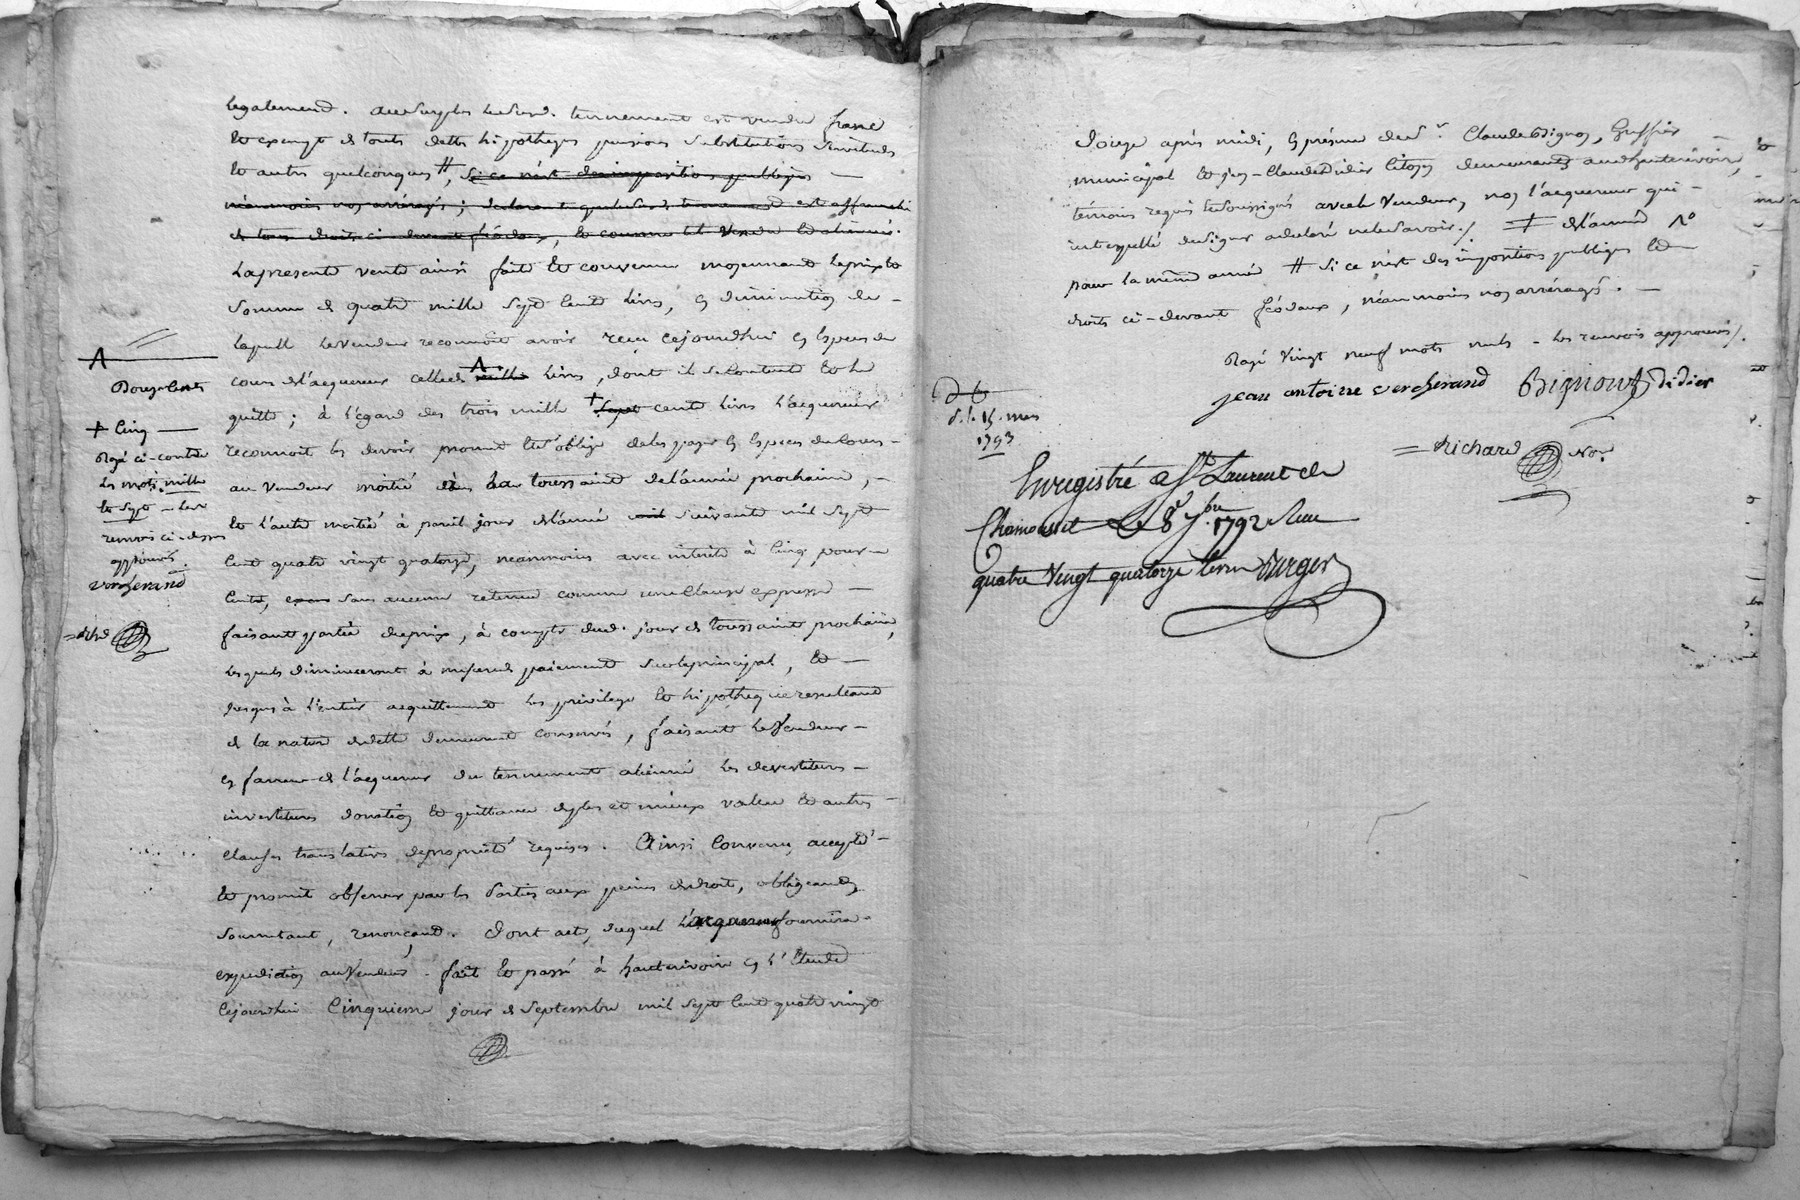 legalement. au surplus led. tennement est vendu franc
et exempt de toutes dettes hipotheques pensions substitutions servitudes
et autres quelconques #, si ce n'est des impositions publiques —
néanmoins nos arrérages; declarant que led. tennement est affranchi
de tous droits ci-devant féodaux, et comme tel vendu et aliéné.
La presente vente ainsi faite et convenue moyennant le prix et
somme de quatre mille sept cent livres, en diminution de —
laquelle le vendeur reconnoit avoir reçu cejourdhui en especes de
cours de l'acquereur celle de mille livres, dont il se contente et le
quitte; à l'égard des trois mille + sept cent livres l'acquereur
reconnoit les devoir promet et s'oblige de les payer en especes de cours —
au vendeur moitié à la toussaint de l'année prochaine, —
et l'autre moitié à pareil jour de l'année suivante mil sept
cent quatre vingt quatorze, neanmoins avec interets à cinq pour —
cent, sans aucune retenue comme une clause expresse —
faisant partie du prix, à compter dud. jour de toussaint prochaine,
lesquels diminueront à mesure de paiement sur le principal, et —
jusqu'à l'entier acquittement les privilege et hipotheque resultant
de la nature de dette demeurent conservés, faisant le vendeur —
en faveur de l'acquereur du tennement aliené les devestitures —
investitures donation et quittance de plus et mieux value et autres —
clauses translatives de propriété requises. Ainsi convenu, accepté —
et promit observer par les parties aux peines de droit, obligeant,
soumettant, renonçant. Dont acte, duquel l'acquereur fournira
expedition au vendeur. fait et passé à hauterivoire en l'Etude
cejourdhui cinquieme jour de septembre mil sept cent quatre vingt
A
Douze cents
+ cinq —
Rayé ci-contre
les mots mille
et sept — les
renvois ci-dessus
approuvés.
vercherand
douze après midi, en présence de sr. Claude Bignoz, Greffier
municipal et Jean-Claude Didier Citoyen demeurants aud. hauterivoire,
témoins requis et soussignés avec le vendeur, non l'acquereur qui —
interpellé de signer a declaré ne le savoir./ ‡ de l'année
pour la même année # si ce n'est des impositions publiques et —
droits ci-devant féodaux, néanmoins nos arrérages. —
Rayé vingt neuf mots nuls — les renvois approuvés/.
jean antoine vercherand Bignoud didier
= Richard Nore.
d. l. 15. mars
1793
Enregistré a St Laurent de
Chamousset Le 8e 7bre 1792 Reçu
quatre Vingt quatorze livres Durger